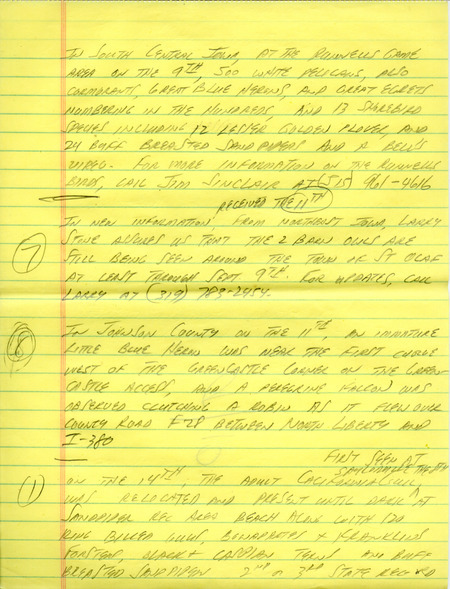 In South Central Iowa, at the Runnells Game
area on the 9TH, 500 white pelicans, also
cormorants, Great Blue Herons, and Great Egrets
numbering in the hundreds, and 13 shorebird
species including 12 Lesser Golden Plover, and
24 Buff Breasted Sandpipers and a Bell's
Vireo. For more information on the Runnells
birds, call Jim Sinclair at (515) 961-4616
received the 11TH
In new information, from Northeast Iowa, Larry
Stone assures us that the 2 Barn Owls are
7
still being seen around the town of St Olaf
at least through Sept. 9TH. For updates, call
Larry at (319) 783-2454.
In Johnson County on the 11TH, an immature
8
Little Blue Heron was near the first curve
west of the Greencastle corner on the Green
Castle Access, and a Peregrine Falcon was
observed clutching a robin as it flew over
County Road F28 between North Liberty and
I-380
First seen at
the 8th
1
On the 14TH, the adult California Gull,
was relocated and present until dark at
Sandpiper Rec Area Beach along with
Ring Billed Gulls, Bonapartes & Franklins
Forsters, Black & Caspian Terns and Buff
Breasted Sandpiper 2nd or 3rd state record